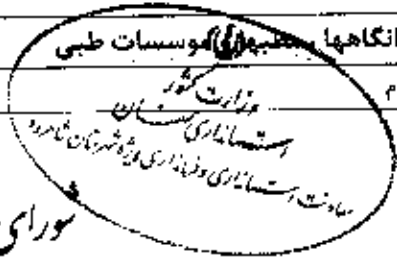 انگاهها مطبهای موسسات طبی
م
وزارت کشور
استانداری سمنان
معاونت استانداری و فرمانداری ویژه شهرستان شاهرود
شورای